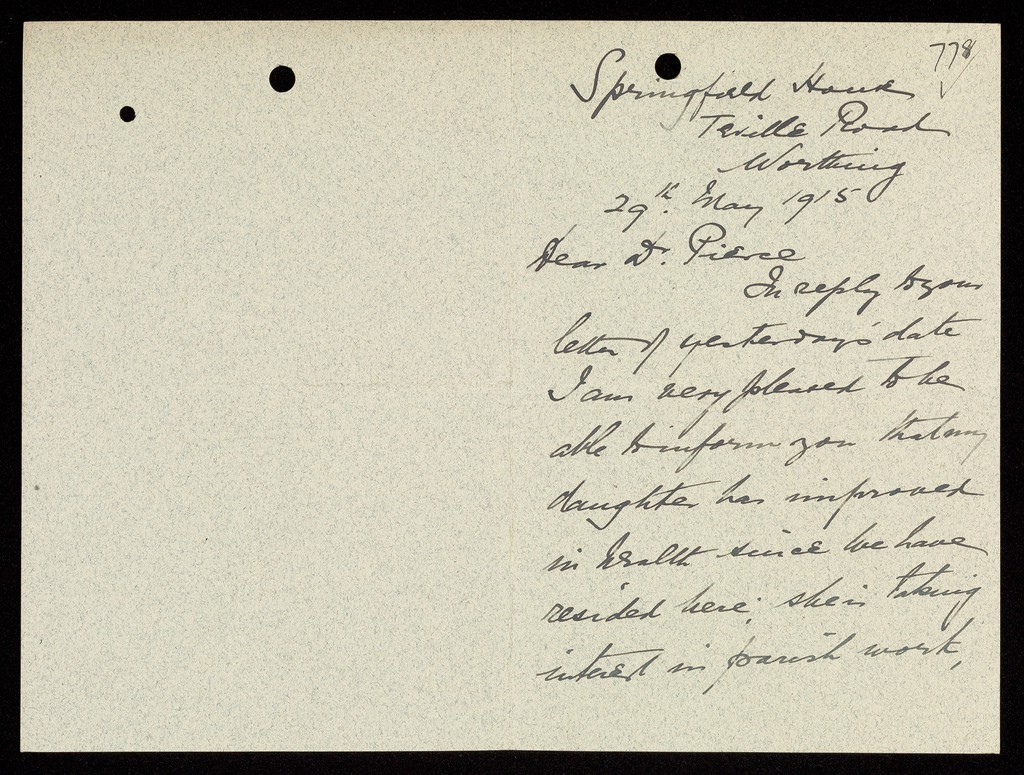 778
Springfield House
Teville Road
Worthing
29th. May 1915
Dear Dr. Pierce
In reply to your
letter of yesterday's date
I am very pleased to be
able to inform you that my
daughter has improved
in health since we have
resided here; she is taking
interest in parish work,